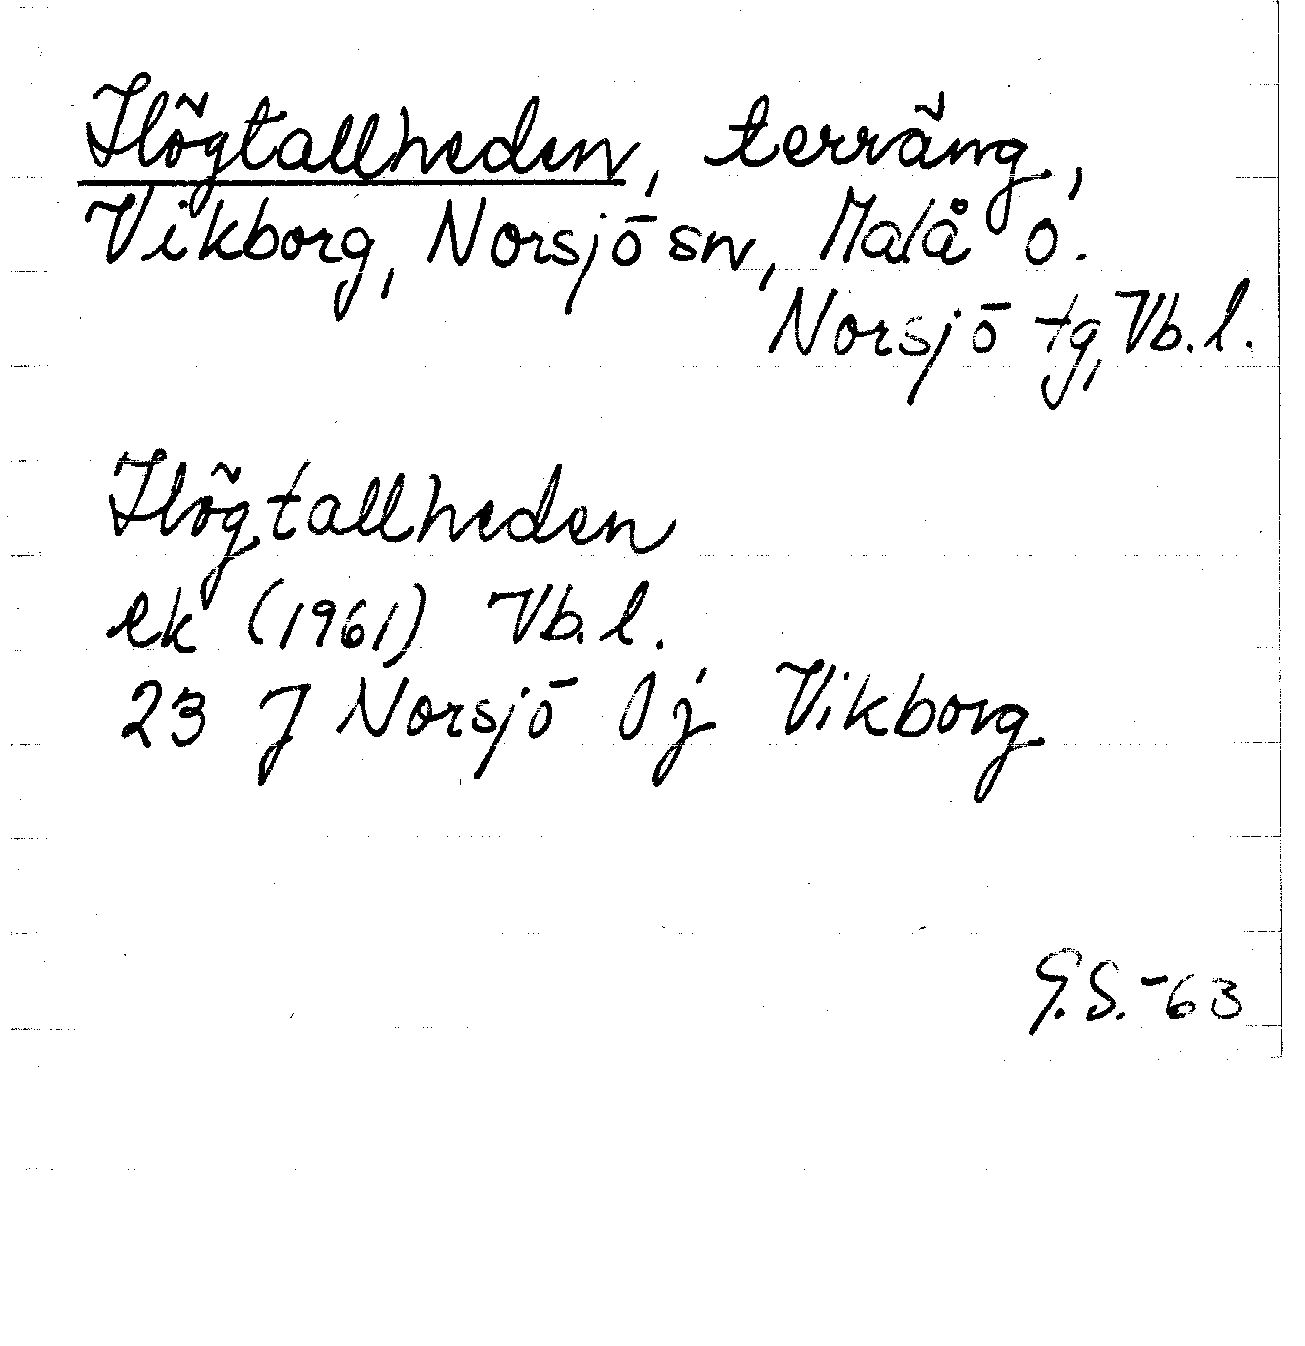 Högtallheden, terräng,
Vikborg, Norsjö sn, Malå o.
Norsjö tg, Vb. l.
Högtallheden
ek (1961) Vb. l.
23 J Norsjö 0j Vikborg
G.S.-63